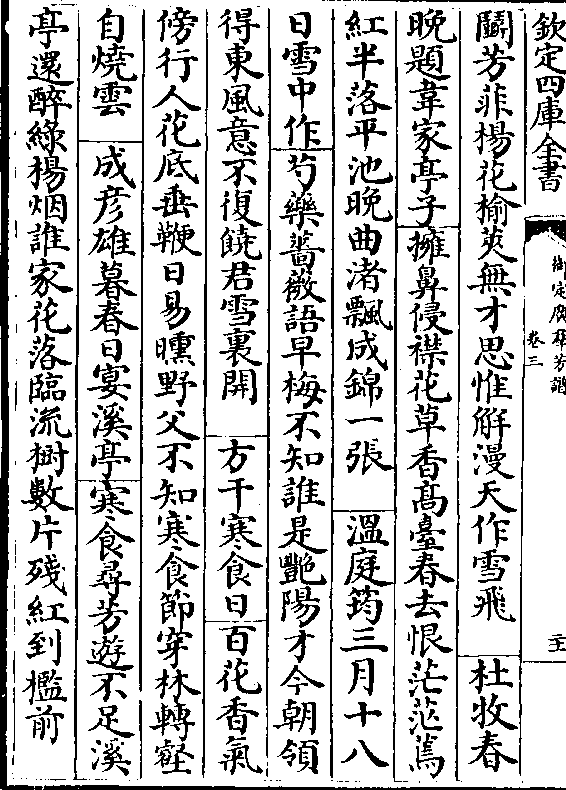 欽定四庫全書
御定廣羣芳譜
卷三
二十
鬬芳菲楊花榆莢無才思惟解漫天作雪飛　杜牧春
晚題韋家亭子擁鼻侵襟花草香髙臺春去恨茫茫蔫
紅半落平池晚曲渚飄成錦一張　溫庭筠三月十八
日雪中作芍藥薔薇語早梅不知誰是艷陽才今朝領
得東風意不復饒君雪裏開　方干寒食日百花香氣
傍行人花底垂鞭日易曛野父不知寒食節穿林轉壑
自燒雲　成彦雄暮春日宴溪亭寒食尋芳遊不足溪
亭還醉綠楊烟誰家花落臨流樹數片殘紅到檻前